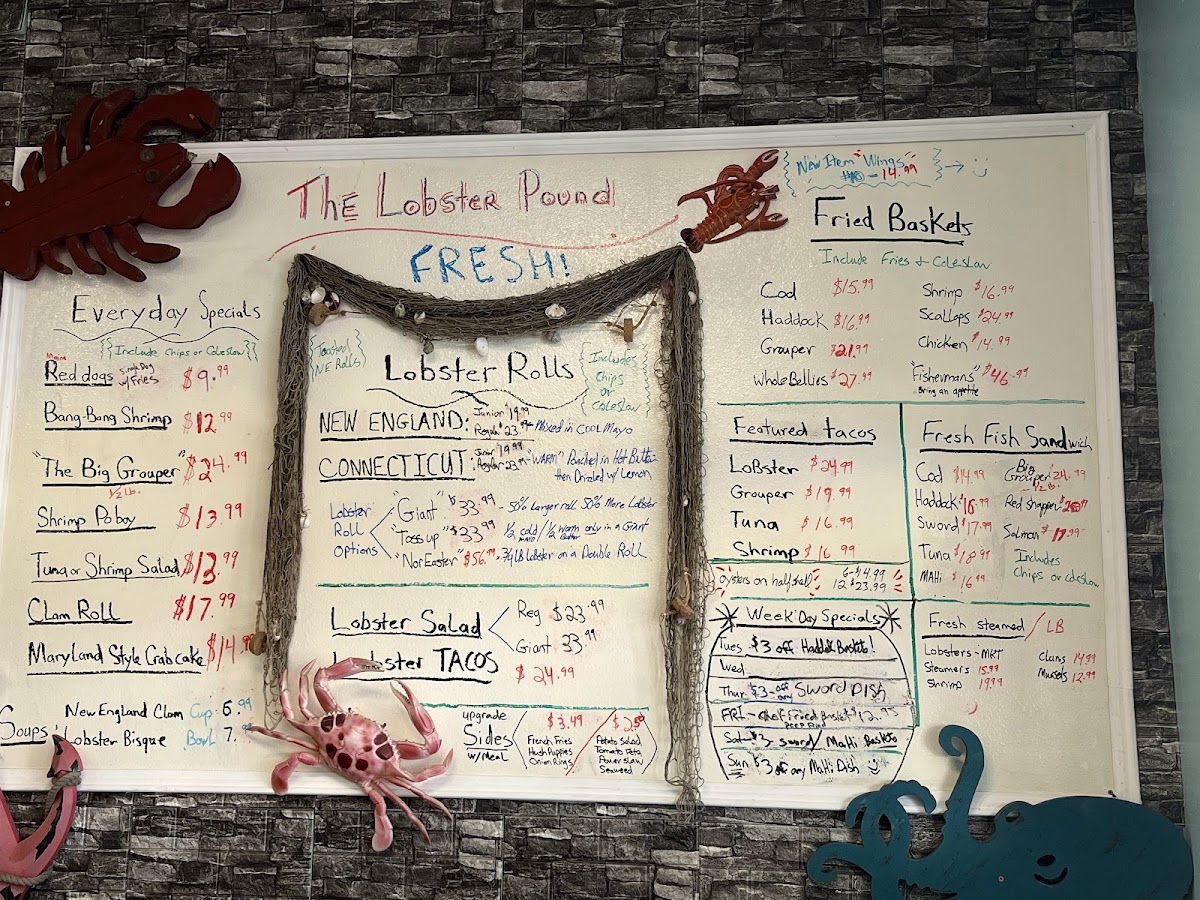 The Lobster Pound
FRESH!
Everyday Specials
Include Chips or Coleslaw
Maine
Red dogs Single Dog w/ Fries $9.99
Bang-Bang Shrimp $12.99
"The Big Grouper" $24.99
1/2 lb.
Shrimp Poboy $13.99
Tuna or Shrimp Salad $13.99
Clam Roll $17.99
Maryland Style Crabcake $14.99
Soups
New England Clam Cup 6.99
Lobster Bisque Bowl 7.99
Toasted N.E Rolls
Lobster Rolls
Includes Chips or Coleslaw
NEW ENGLAND: Junior $19.99
Regular $23.99 Mixed in COOL Mayo
CONNECTICUT: Junior $19.99
Regular 23.99 "WARM" Poached in Hot Butter
then Drizzled w/ Lemon
Lobster Roll Options
"Giant" $33.99 - 50% larger roll 50% More Lobster
"Toss up" $33.99 1/2 cold mayo / 1/2 warm butter only in a Giant
"NorEaster" $56.99 - 3/4 LB Lobster on a Double Roll
Lobster Salad
Reg $23.99
Giant 33.99
Lobster TACOS $24.99
upgrade
Sides
w/ Meal
$3.49
French Fries
Hush Puppies
Onion Rings
Potato Salad
Tomato Feta
Power slaw
Seaweed
New Item "Wings"
#10 - 14.99
Fried Baskets
Include Fries & Coleslaw
Cod $15.99
Haddock $16.99
Grouper $21.99
Whole Bellies $27.99
Shrimp $16.99
Scallops $24.99
Chicken $14.99
"Fishermans" $46.99
- Bring an appetite
Featured tacos
Lobster $24.99
Grouper $19.99
Tuna $16.99
Shrimp $16.99
oysters on half shell 6-$14.99
12 $23.99
Fresh Fish Sandwich
Cod $14.99
Haddock $16.99
Sword $17.99
Tuna $18.99
MAHi $16.99
Big Grouper 24.99
1/2 lb.
Red snapper
Salmon $17.99
Includes
Chips or coleslaw
Week Day Specials
Tues $3 off Haddock Baskets!
Wed
Thur $3-off any Sword Dish
FRI - Basket $12.95
Sat - $3 Sword / Mahi Baskets
Sun $3 off any Mahi Dish
Fresh steamed / LB
Lobsters - MKT
Steamers 15.99
Shrimp 19.99
Clams 14.99
Mussels 12.99